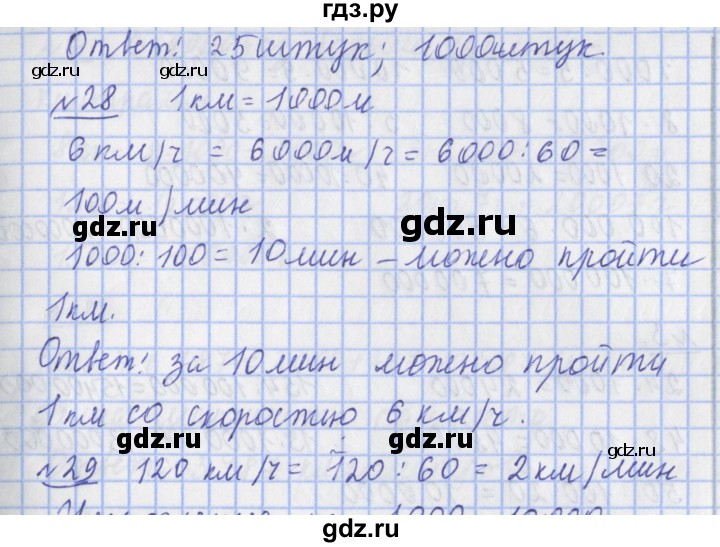 гдз.ру
Ответ: 25 штук; 1000 штук.
gdz.ru gdz.ru gdz.ru
№28 1 км = 1000 м
6 км/ч = 6000 м/ч = 6000:60 =
100 м/мин
gdz.ru gdz.ru
1000:100 = 10 мин – можно пройти
1 км.
Ответ: за 10 мин можно пройти
gdz.ru gdz.ru gdz.ru
1 км со скоростью 6 км/ч.
gdz.ru gdz.ru
№29 120 км/ч = 120:60 = 2 км/мин
gdz.ru